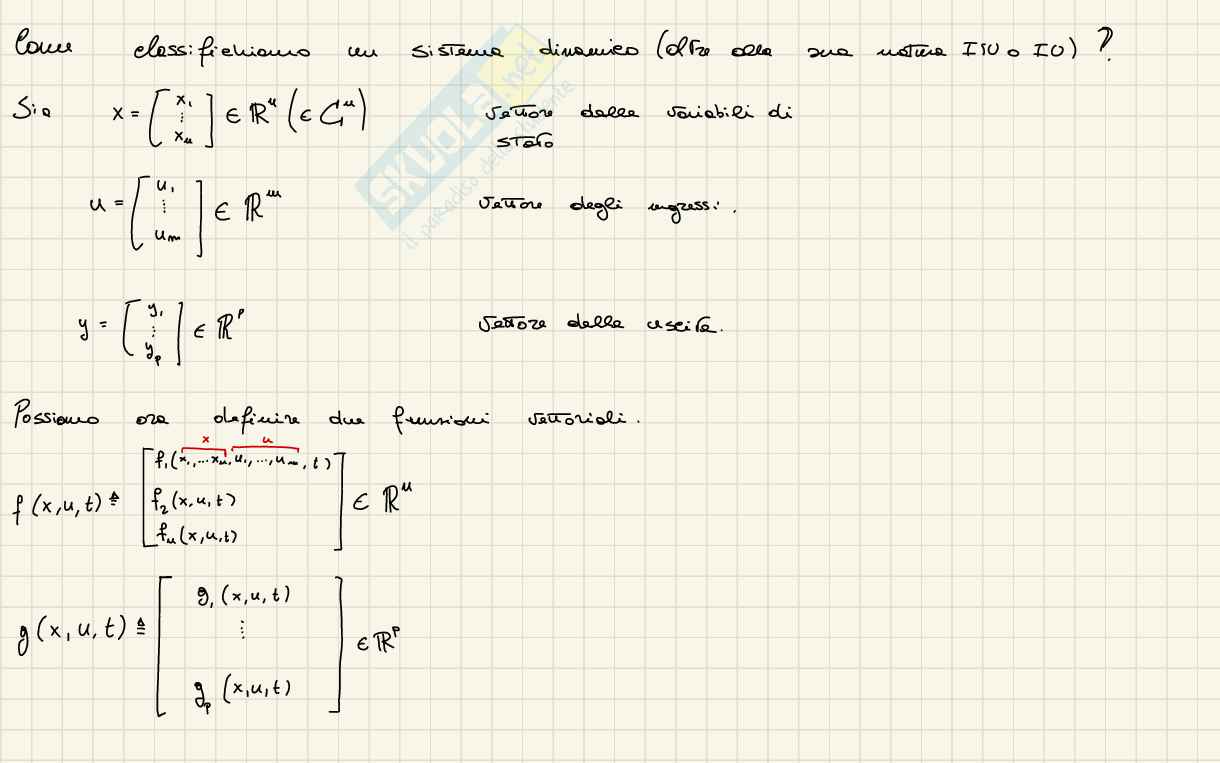 Come classifichiamo un sistema dinamico (oltre alla sua natura ISU o IU) ?
Sia x = [x₁ ⋮ xₙ] ∈ ℝⁿ (∈ ℂⁿ) vettore delle variabili di
stato
u = [u₁ ⋮ uₘ] ∈ ℝᵐ vettore degli ingressi.
y = [y₁ ⋮ yₚ] ∈ ℝᵖ vettore delle uscite.
Possiamo ora definire due funzioni vettoriali.
x u
f(x,u,t) ≜ [f₁(x₁,...xₙ,u₁,...,uₘ,t)
f₂(x,u,t)
fₙ(x,u,t)] ∈ ℝⁿ
g(x,u,t) ≜ [g₁(x,u,t)
⋮
gₚ(x,u,t)] ∈ ℝᵖ
SKUOLA.net
il paradiso dello studente